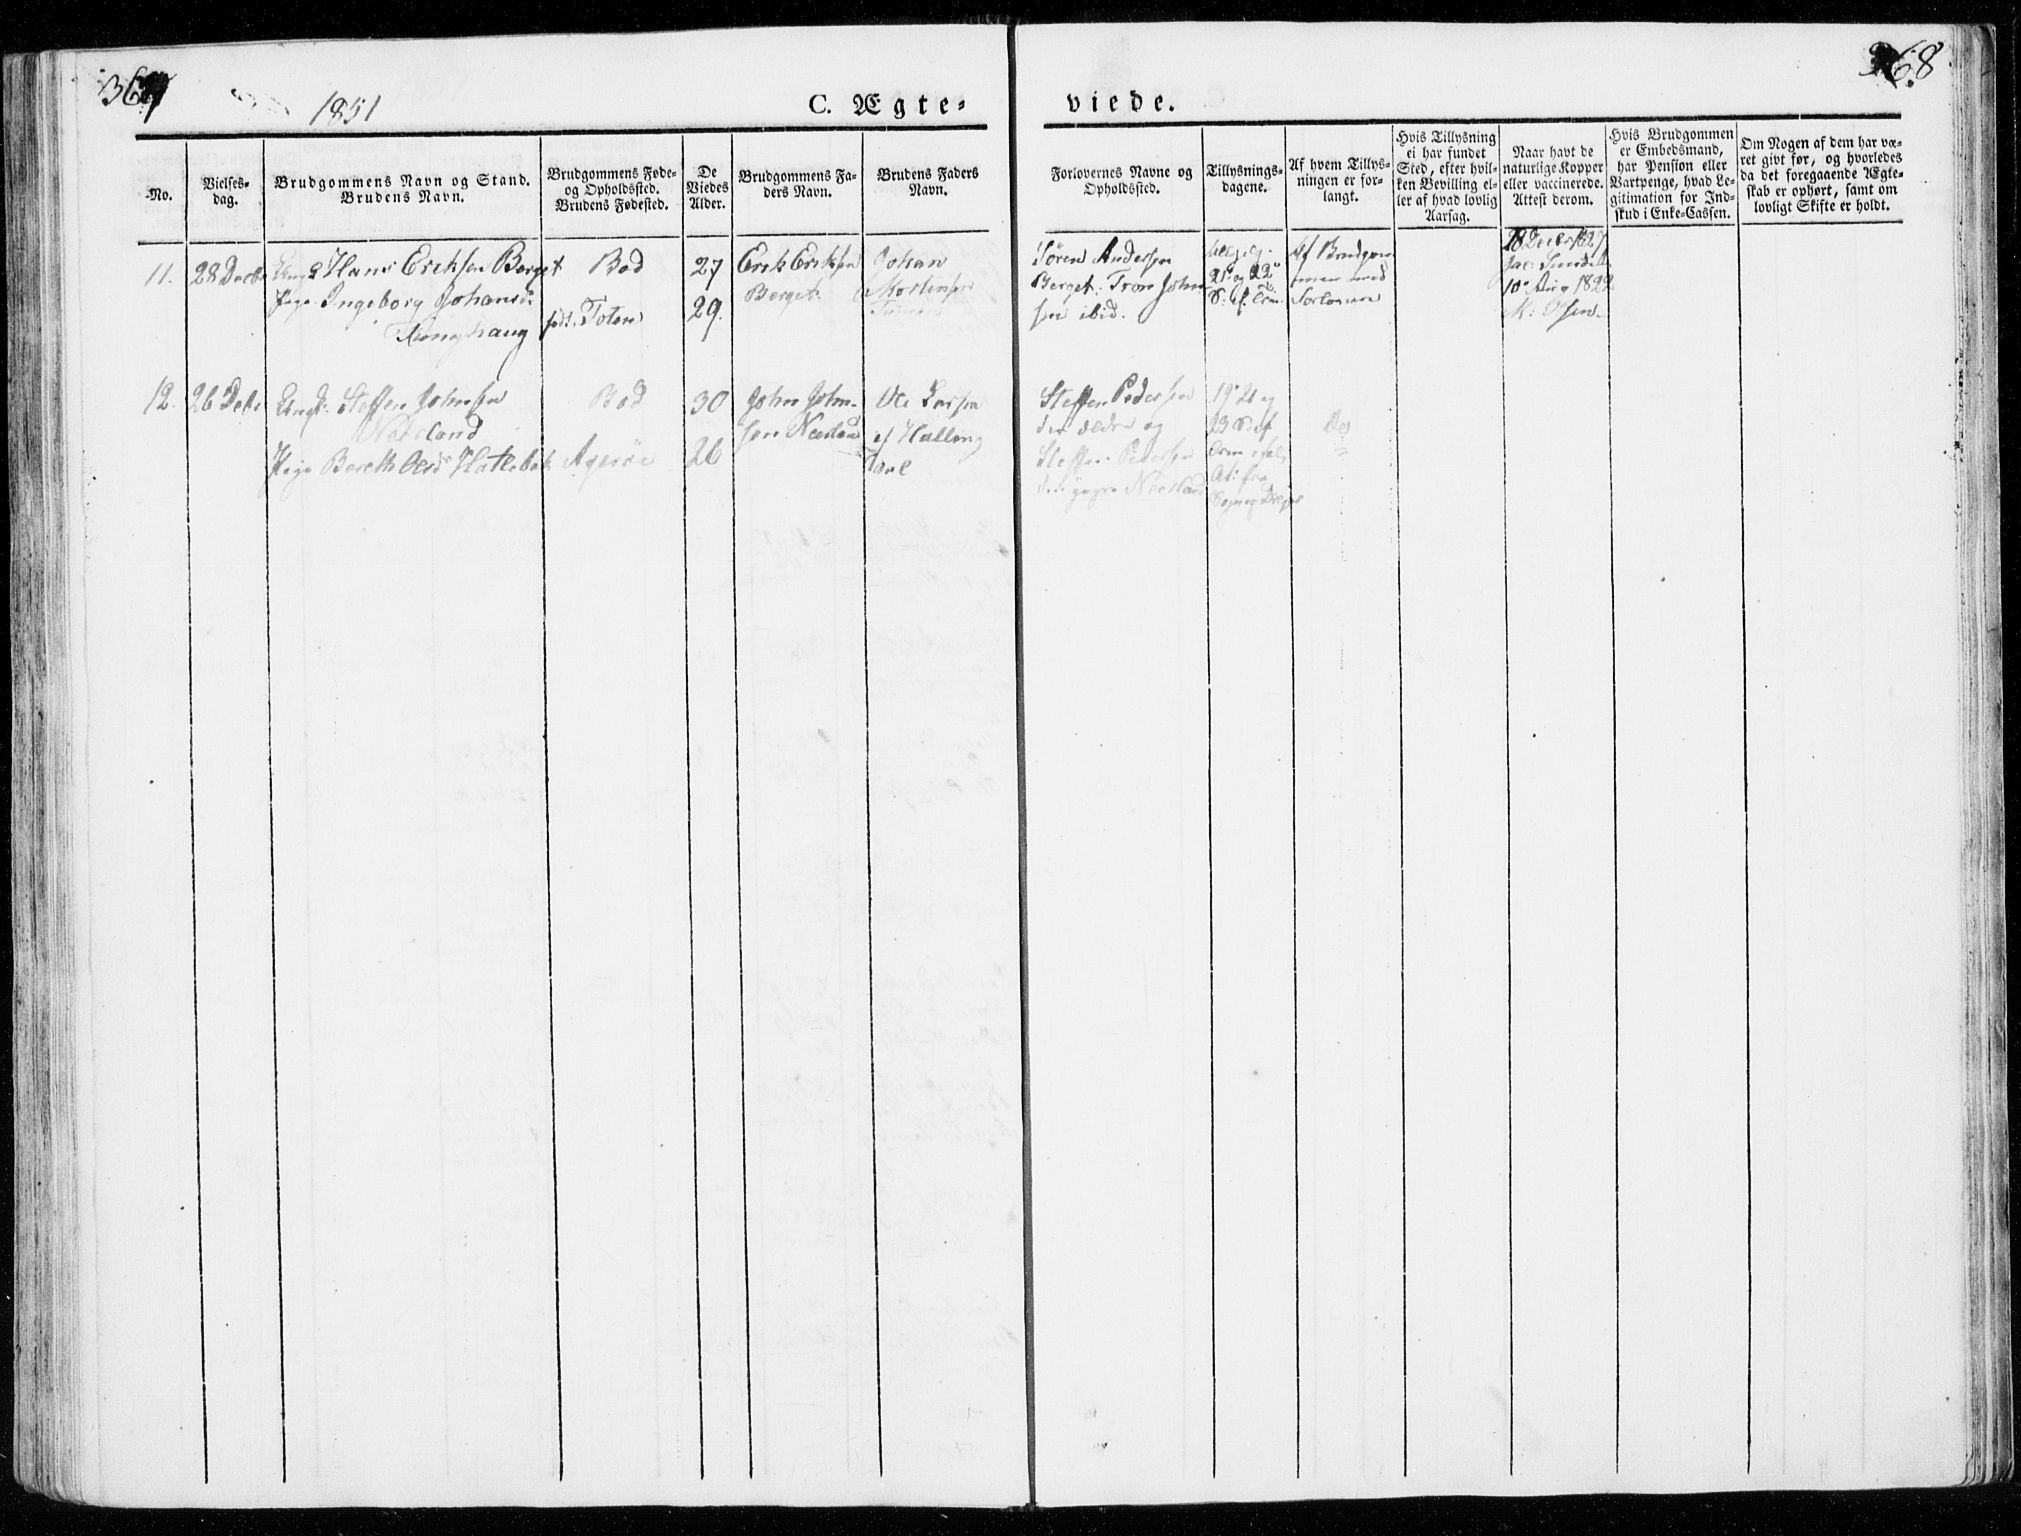 367
368
1851
C. Ægte-
viede.
No.
Vielses-
dag.
Brudgommens Navn og Stand.
Brudens Navn.
Brudgommens Føde-
og Opholdssted.
Brudens Fødested.
De
Viedes
Alder.
Brudgommens Fa-
ders Navn.
Brudens Faders
Navn.
Forlovernes Navne og
Opholdssted.
Tillysnings-
dagene.
Af hvem Tillys-
ningen er for-
langt.
Hvis Tillysning
ei har fundet
Sted, efter hvil-
ken Bevilling el-
ler af hvad lovlig
Aarsag.
Naar havt de
naturlige Kopper
eller vaccinerede.
Attest derom.
Hvis Brudgommen
er Embedsmand,
har Pension eller
Vartpenge, hvad Le-
gitimation for Ind-
skud i Enke-Cassen.
Om Nogen af dem har væ-
ret givt før, og hvorledes
da det foregaaende Ægte-
skab er ophørt, samt om
lovligt Skifte er holdt.
11.
28 Decbr
Hans Eriksen Berget
Pige Ingeborg Johansd.
Bod
Toten
27
29.
Erik Eriksen
Berget.
Johan
Mortensen
Søren Andersen
Berget. Tron John-
sen ibid.
21 og 22
Af Brudgom-
men med
Forloverne
18 Decbr 1827
10 Aug 1822
12.
26 Decbr
Ungk. Steffen Johnsen
Neerland
Pige Bereth Olsd. Hatlebak
Bod
Agerøe
30
26
John John-
sen Neerland
Ole Larsen
af Halling
dael
Steffen Pedersen
den ældre og
Steffen Pedersen
den yngre Neerland
19 21 og
23 S. ef
Do